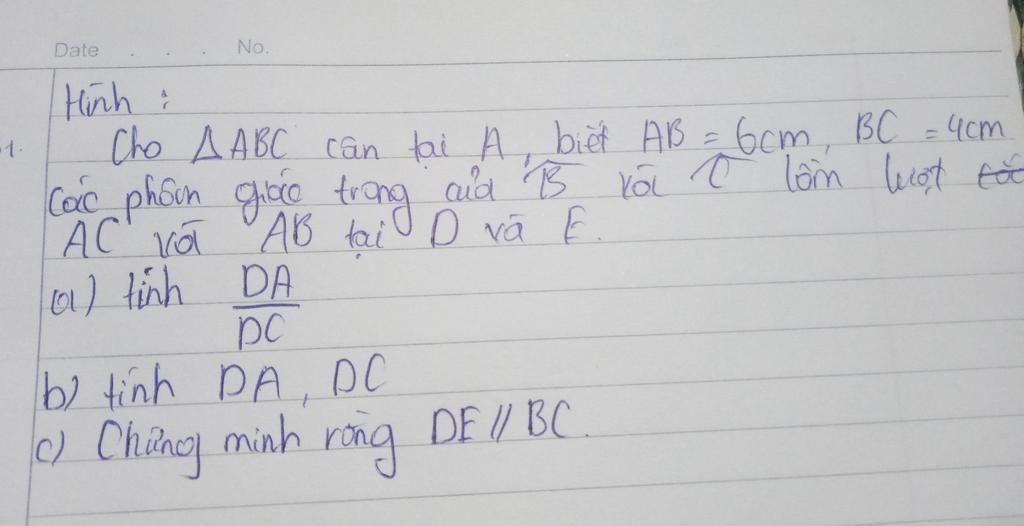 Date . . . No.
Hình :
1. Cho ΔABC cân tại A, biết AB = 6cm, BC = 4cm
Các phân giác trong của B̂ và Ĉ lần lượt cắt
AC và AB tại D và E.
a) tính DA/DC
b) tính DA, DC
c) Chứng minh rằng DE // BC.